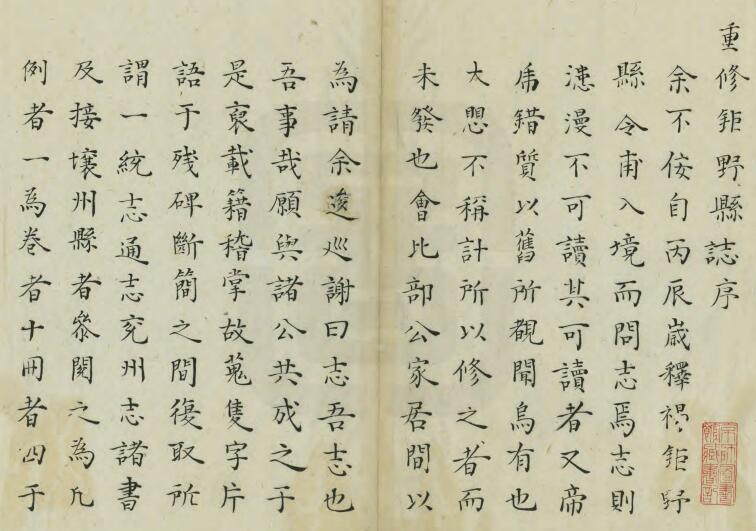 重修鉅野縣誌序
余不佞自丙辰歲釋褐鉅野
縣令甫入境而問志焉志則
漶漫不可讀其可讀者又帝
虎錯質以舊所覩聞烏有也
大愳不稱計所以修之者而
未發也會比部公家居間以
為請余逡巡謝曰志吾志也
吾事哉願與諸公共成之于
是裒載籍稽掌故蒐隻字片
語于殘碑斷簡之間復取所
謂一統志通志兖州志諸書
及接壤州縣者叅閱之為凡
例者一為卷者十冊者四于